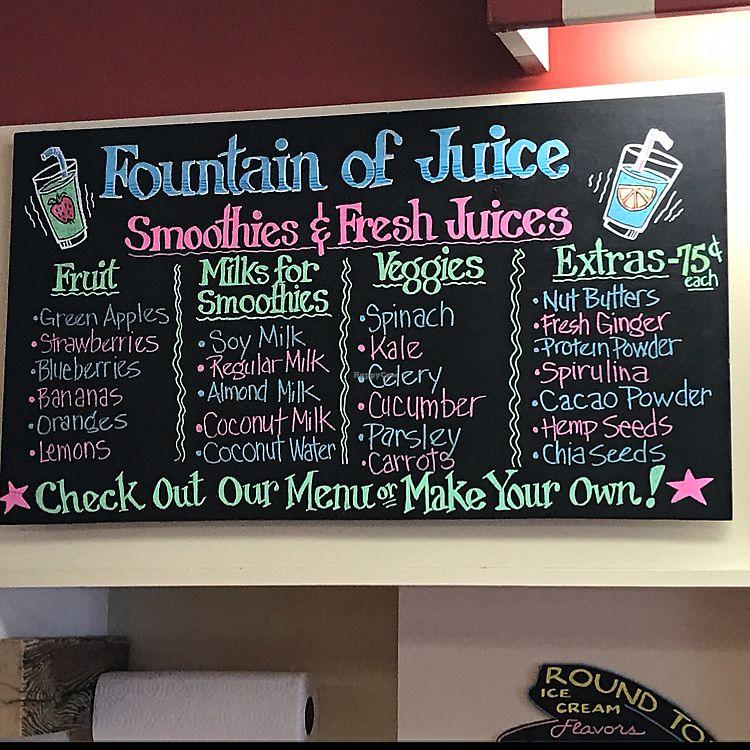 Fountain of Juice
Smoothies & Fresh Juices
Fruit
• Green Apples
• Strawberries
• Blueberries
• Bananas
• Oranges
• Lemons
Milks for
Smoothies
• Soy Milk
• Regular Milk
• Almond Milk
• Coconut Milk
• Coconut Water
Veggies
• Spinach
• Kale
• Celery
• Cucumber
• Parsley
• Carrots
Extras - 75¢
each
• Nut Butters
• Fresh Ginger
• Protein Powder
• Spirulina
• Cacao Powder
• Hemp Seeds
• Chia Seeds
Check Out Our Menu or Make Your Own!
HappyCow
ROUND TO
ICE
CREAM
Flavors